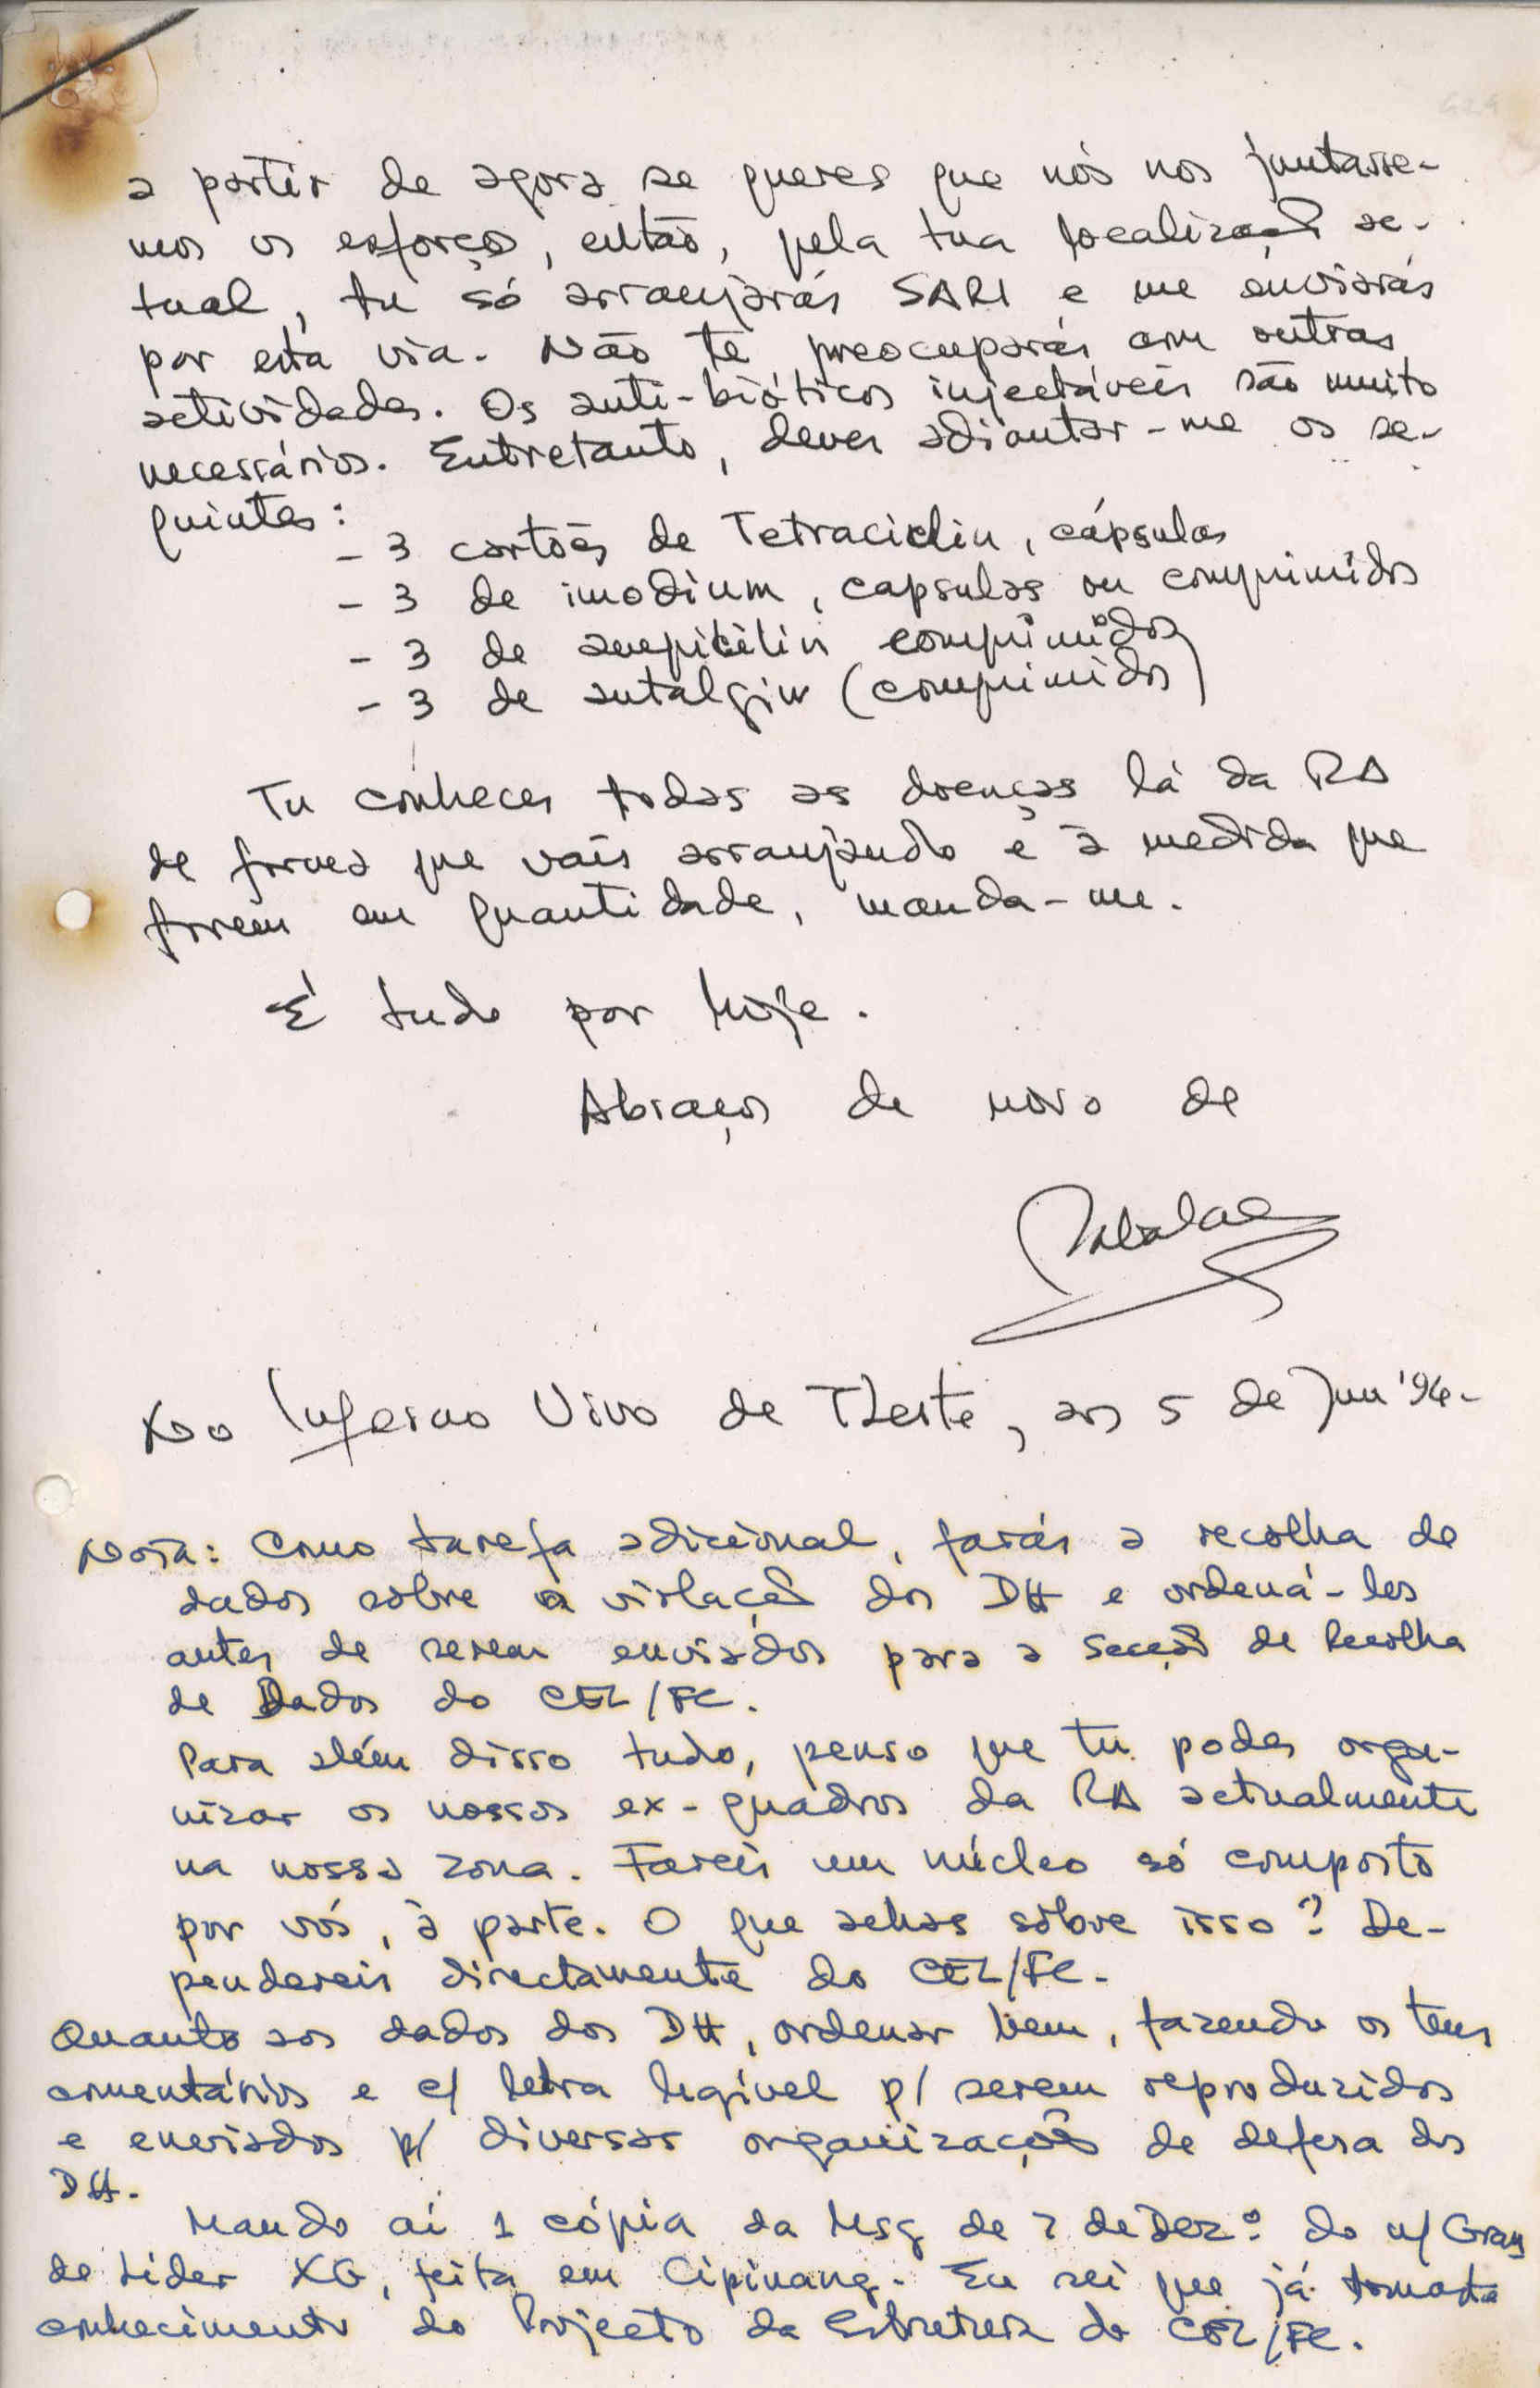 a partir de agora se queres que nós nos juntasse-
mos os esforços, então, pela tua localização ac-
tual, tu só arranjarás SARI e me enviarás
por esta via. Não te preocuparás com outras
actividades. Os anti-bióticos injectáveis são muito
necessários. Entretanto, deves adiantar-me os se-
guintes:
- 3 cartões de Tetraciclin, cápsulas
- 3 de imodium, capsulas ou comprimidos
- 3 de ampicilin comprimidos
- 3 de antalgin (comprimidos)
Tu conheces todas as doenças lá da RA
de forma que vais arranjando e à medida que
forem em quantidade, manda-me.
É tudo por hoje.
Abraços de novo de
No Inferno Vivo de TLeste, aos 5 de Jun '94-
Nota: Como tarefa adicional, farás a recolha de
dados sobre a violação dos DH e ordená-los
antes de serem enviados para a Secção de Recolha
de Dados do CEL/FC.
Para além disso tudo, penso que tu podes orga-
nizar os nossos ex-quadros da RA actualmente
na nossa zona. Fareis um núcleo só composto
por vós, à parte. O que achas sôbre isso? De-
pendereis directamente do CEL/FC.
Quanto aos dados dos DH, ordenar bem, fazendo os teus
comentários e c/ letra legível p/ serem reproduzidos
e enviados p/ diversas organizações de defesa dos
DH.
Mando aí 1 cópia da Msg de 7 de Dezº do n/ Gran
de Lider XG, feita em Cipinang. Eu sei que já tomaste
conhecimento do Projecto da Estrutura do CEL/FC.